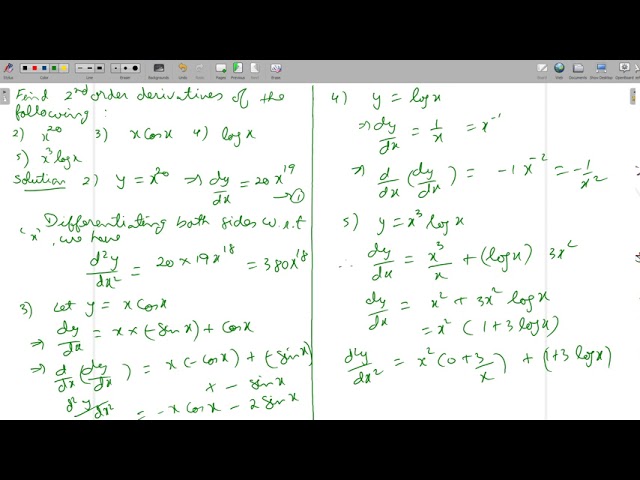 Find 2nd order derivatives of the
following :
2) x^20 3) x cosx 4) logx
5) x^3 logx
Solution 2) y = x^20 ⇒ dy/dx = 20x^19 → ①
Differentiating both sides w.r.t
'x', we have
d^2y/dx^2 = 20 × 19 x^18 = 380x^18
3) Let y = x cosx
⇒ dy/dx = x × (-sinx) + cosx
⇒ d/dx (dy/dx) = x(-cosx) + (-sinx)
+ - sinx
d^2y/dx^2 = -x cosx - 2 sinx
4) y = logx
⇒ dy/dx = 1/x = x^-1
⇒ d/dx (dy/dx) = -1 x^-2 = -1/x^2
5) y = x^3 logx
∴ dy/dx = x^3/x + (logx) 3x^2
dy/dx = x^2 + 3x^2 logx
= x^2 (1 + 3 logx)
d^2y/dx^2 = x^2 (0 + 3/x) + (1+3 logx)